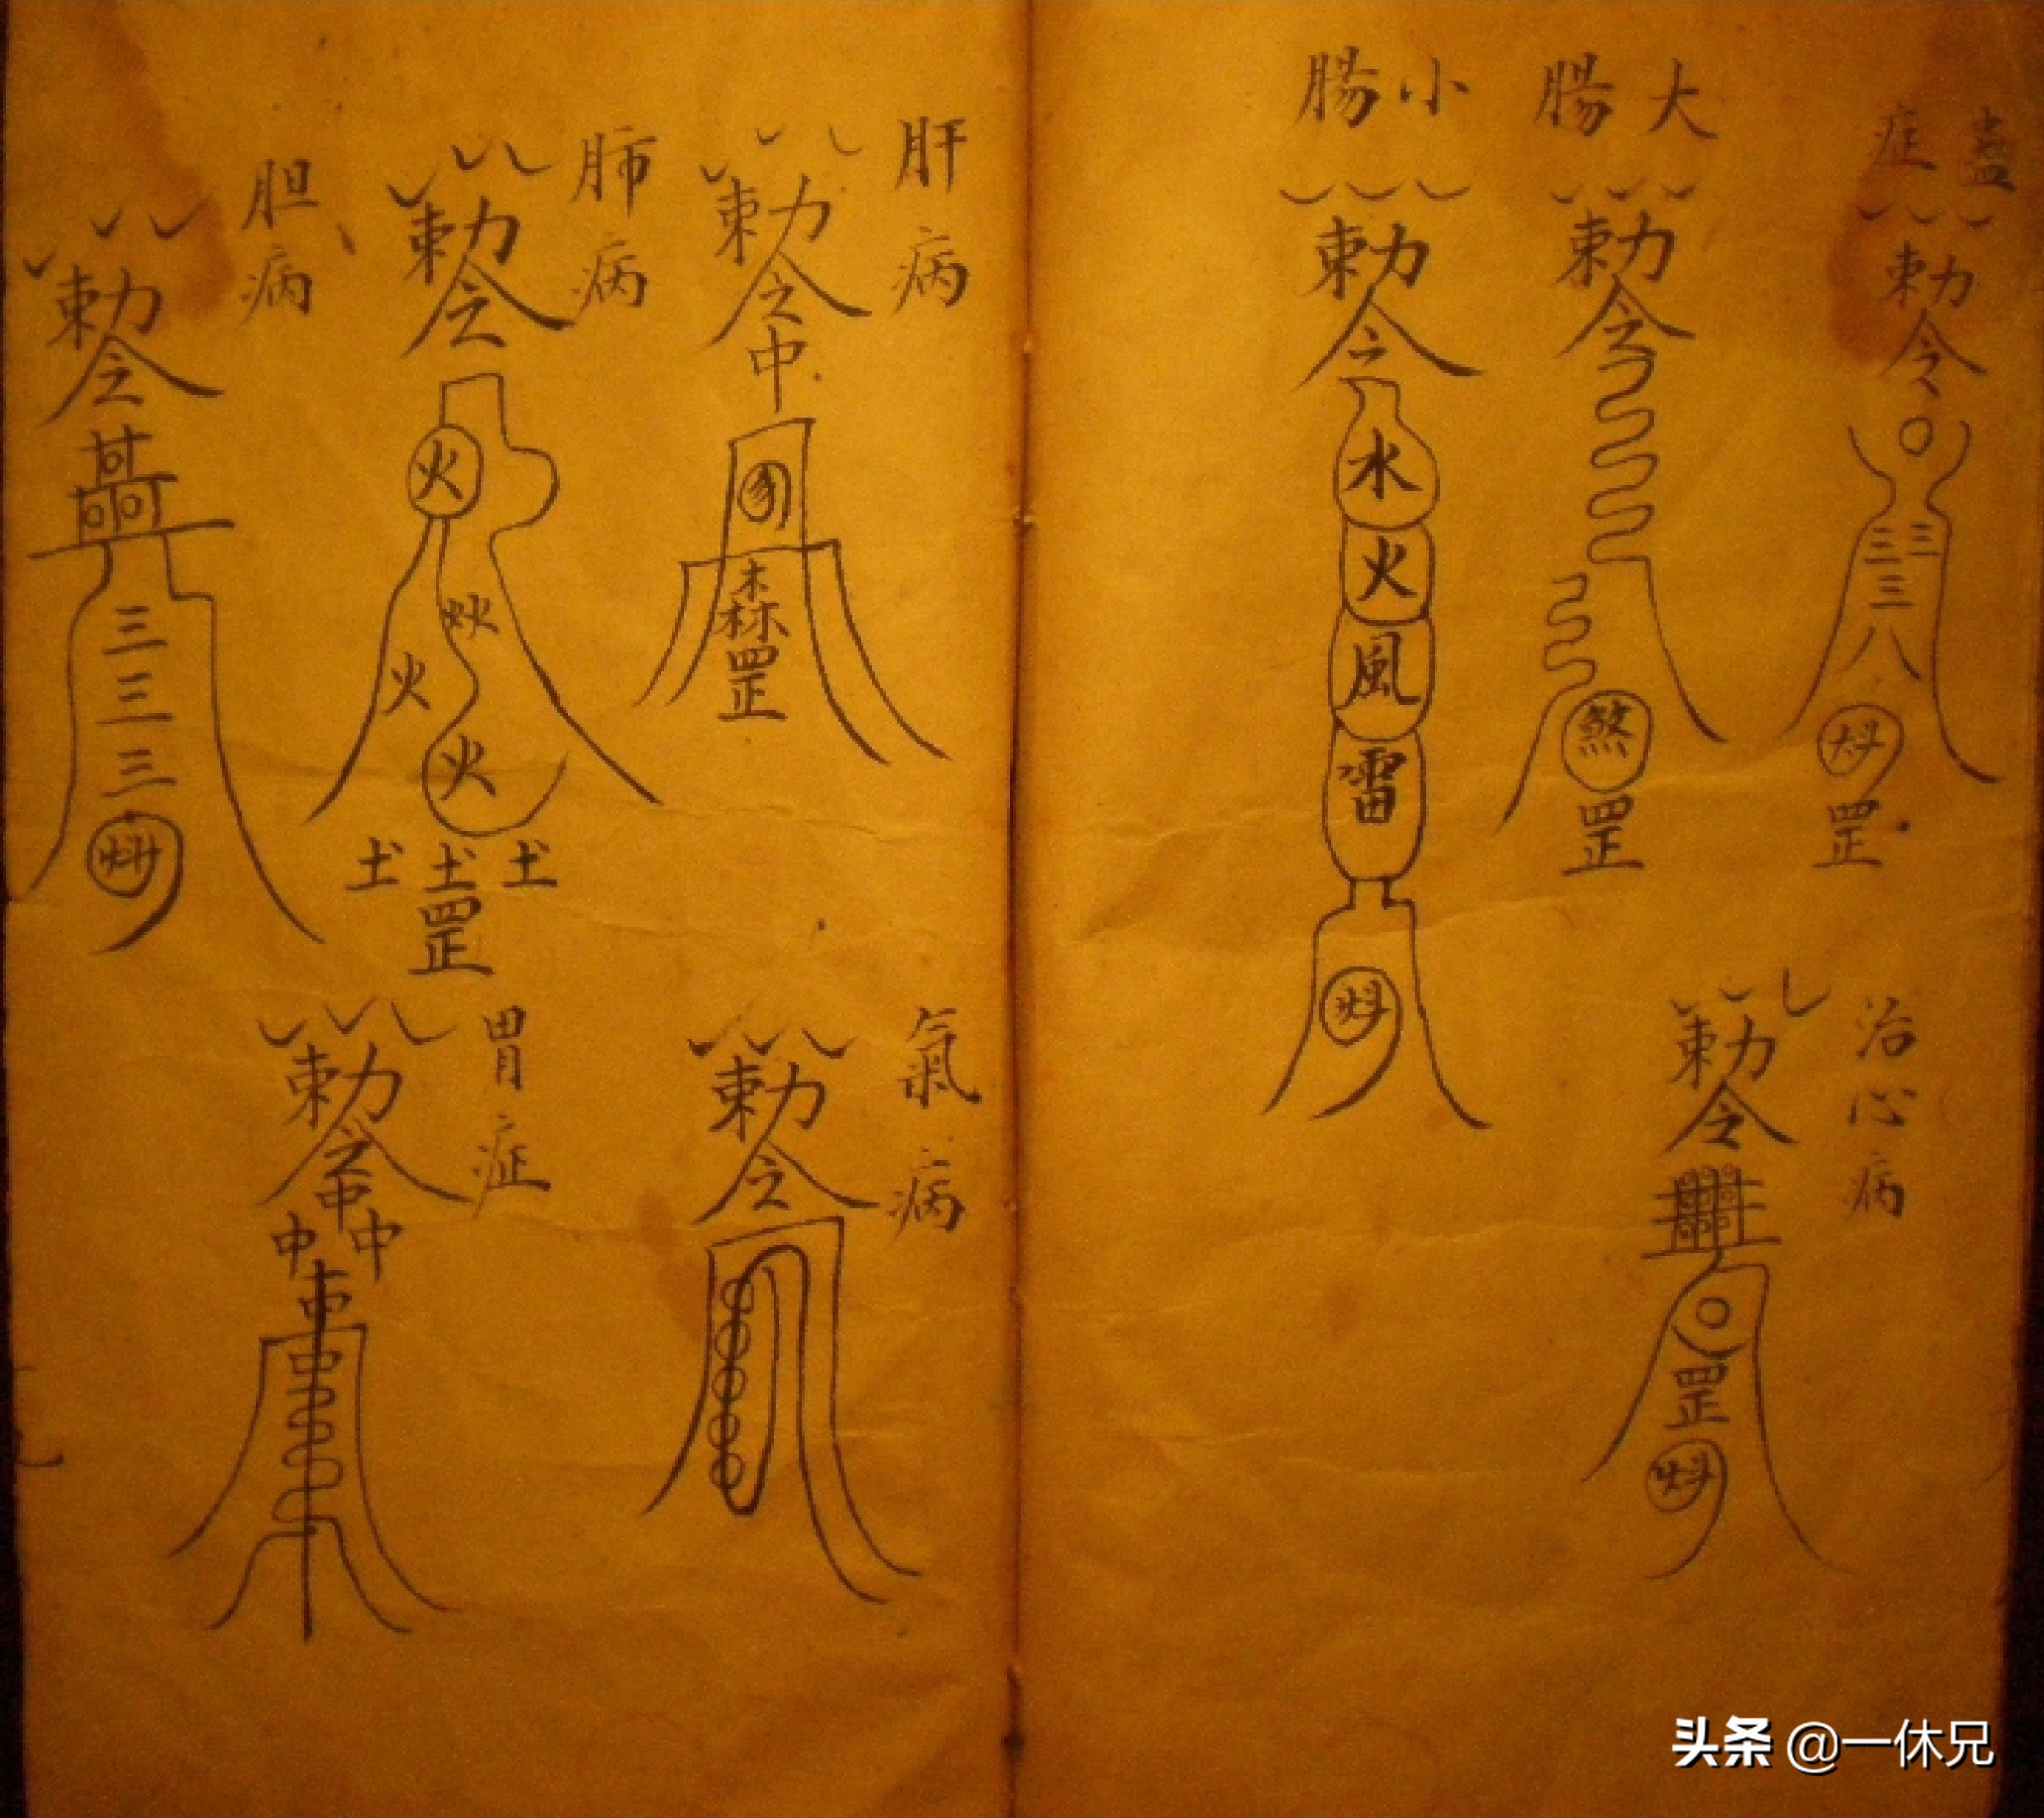 蠱症
勅令
三三三八
罡
大腸
勅令
煞
罡
小腸
勅令
水
火
風
雷
治心病
勅令
罡
肝病
勅令
中
木林
罡
肺病
勅令
火
火
火火
火
土土土
罡
胆病
勅令
三
三
三
氣病
勅令
胃症
勅令
中
中中
头条 @一休兄